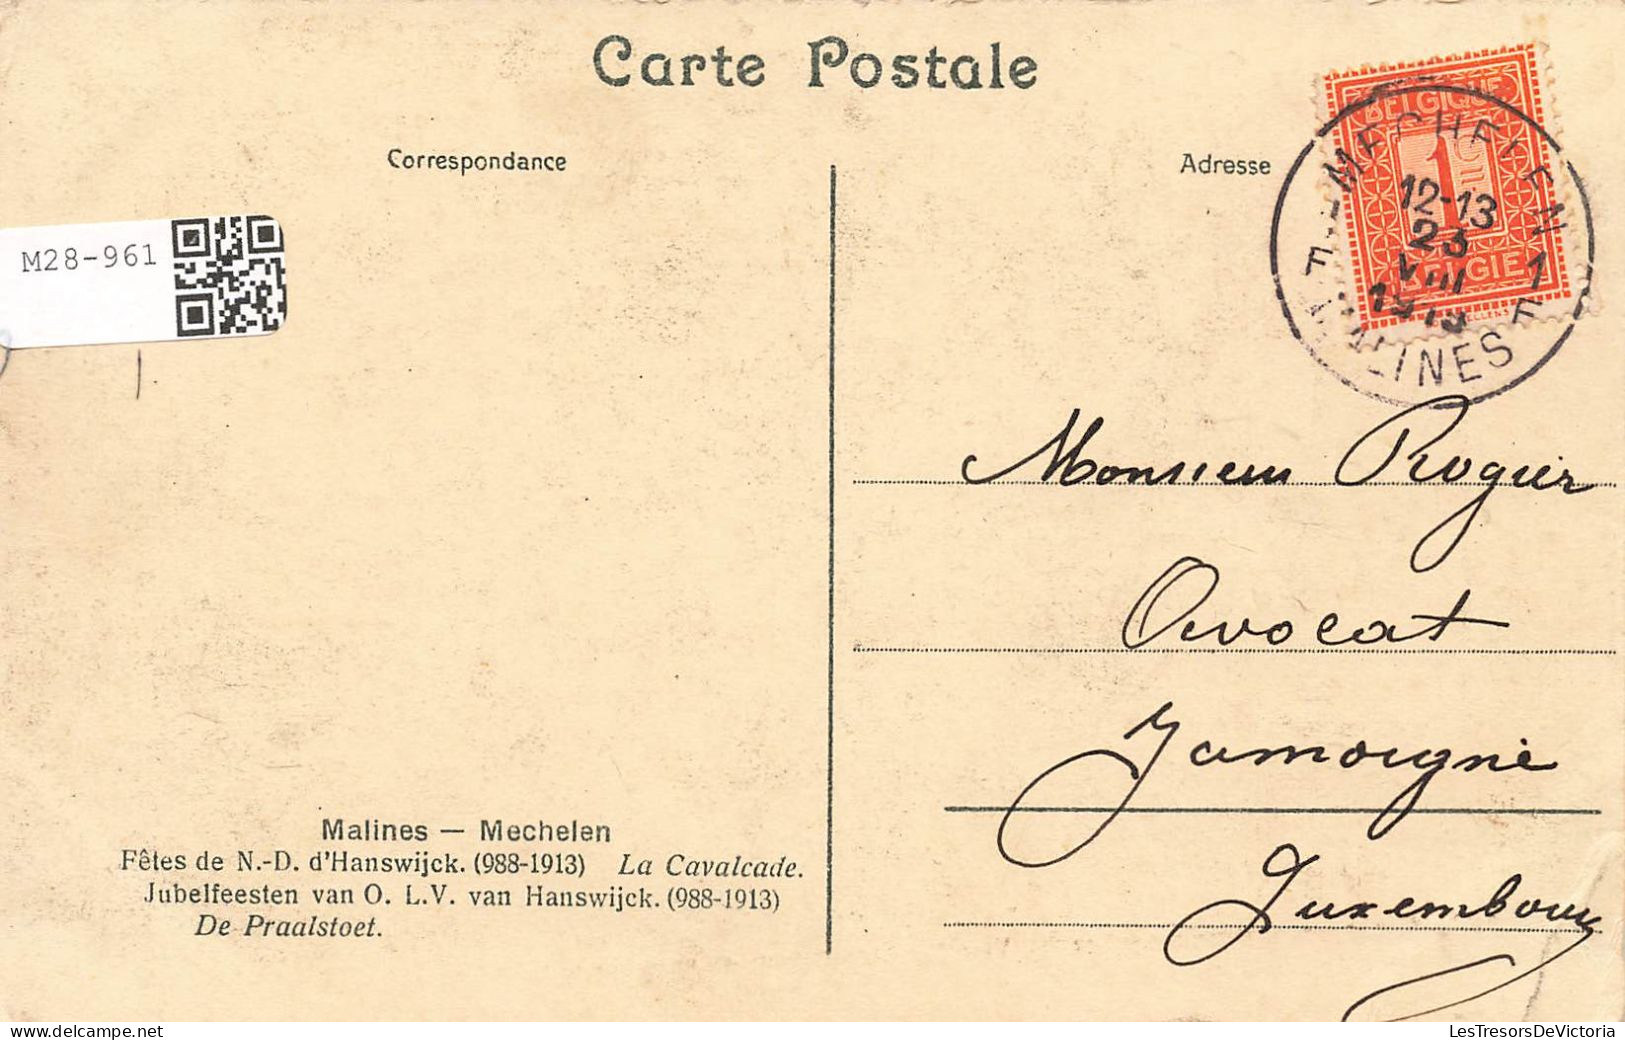 Carte Postale
Correspondance
Adresse
M28-961
BELGIQUE
1
BELGIË
MECHELEN 1
12-13
23
VIII
1913
F
MALINES
Monsieur Rogier
Avocat
Jamoigne
Luxembourg
Malines — Mechelen
Fêtes de N.-D. d'Hanswijck. (988-1913) La Cavalcade.
Jubelfeesten van O. L.V. van Hanswijck. (988-1913)
De Praalstoet.
LesTresorsDeVictoria